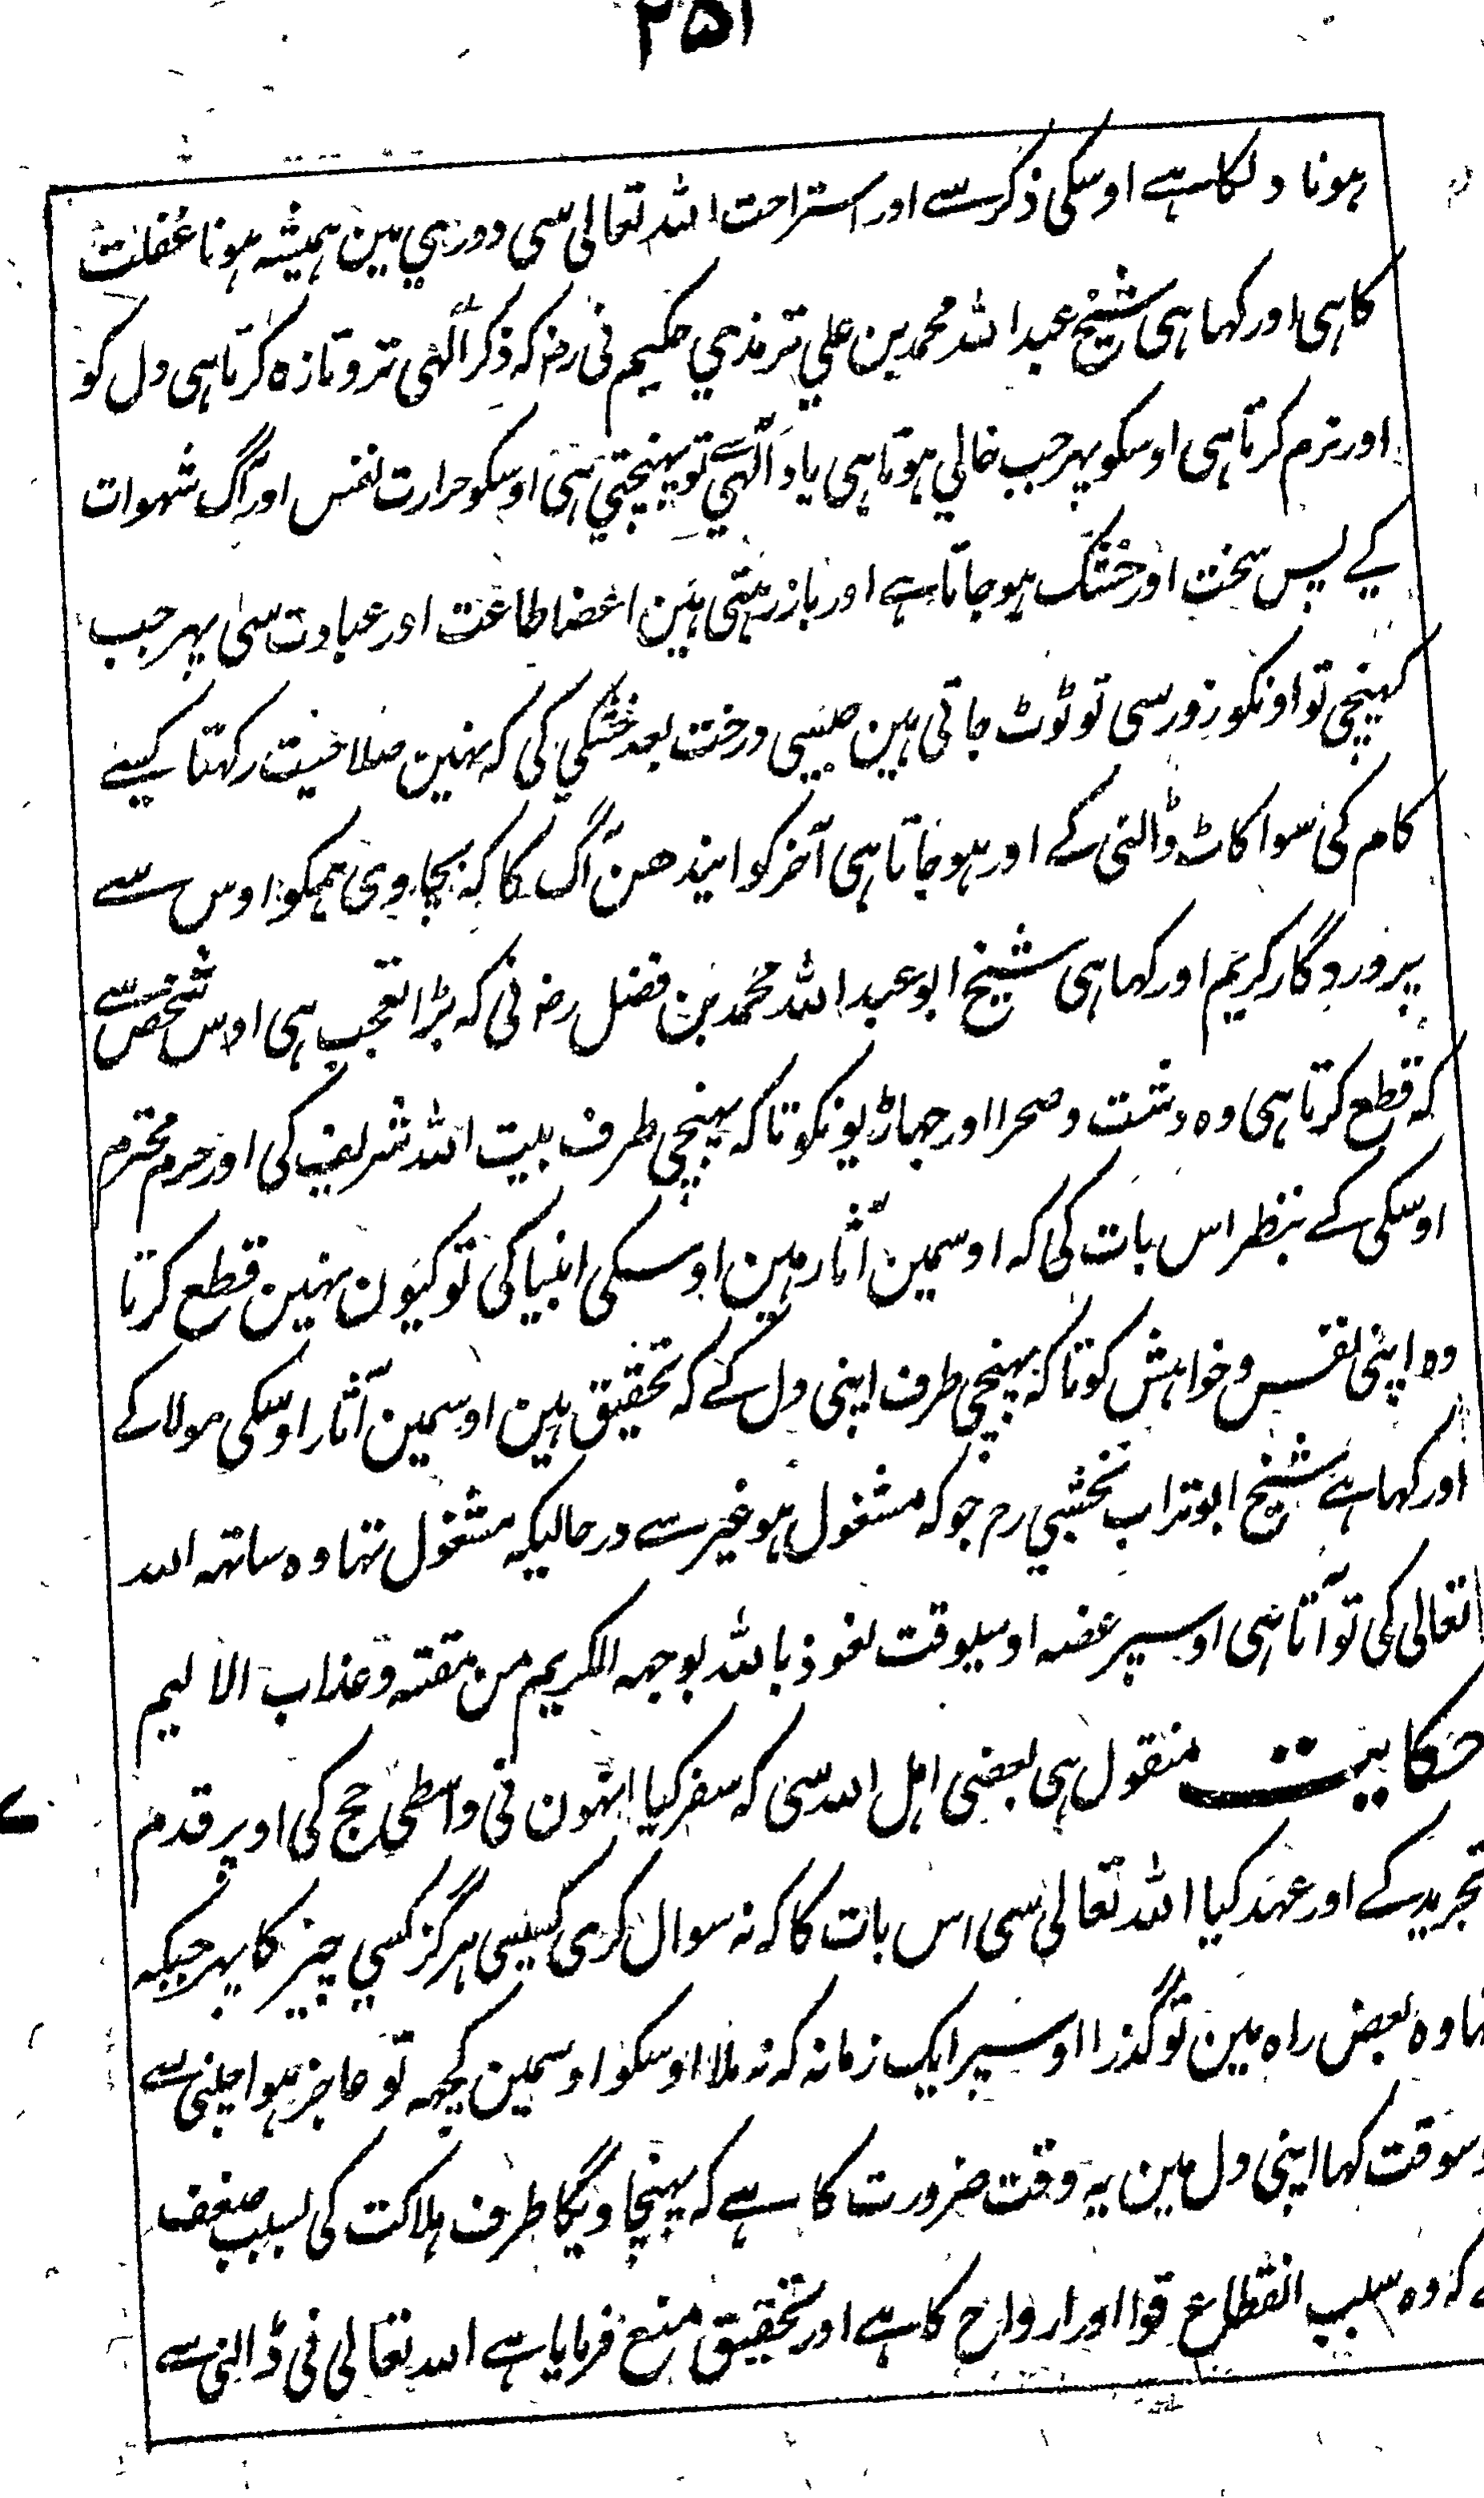 ۲۵۱
ہونا دلکا ہے اوسکی ذکر سے اور استراحت اللہ تعالی سی دوری مین ہمیشہ ہونا غفلت
کا ہی اور کہا ہی شیخ عبد اللہ محمد بن علی ترمذی حکیم نی رضہ کہ ذکر الٰہی تر و تازہ کرتا ہی دل کو
اور نرم کرتا ہی اوسکو پہر جب خالی ہوتا ہی یاد الٰہی سے تو پہنچتی ہی اوسکو حرارت نفس اور آگ شہوات
کے پس سخت اور خشک ہو جاتا ہے اور باز رہتی ہین اعضا طاعت اور عبادت سی پہر جب
کہینچی تو اونکو زور سی تو ٹوٹ جاتی ہین جیسی درخت بعد خشکی کی کہ نہین صلاحیت رکہتا کسے
کام کی سوا کاٹ ڈالنی کے اور ہو جاتا ہی آخر کو ایندھن آگ کا کہ بچاوی ہمکو اوس سے
پروردگار کریم اور کہا ہی شیخ ابو عبد اللہ محمد بن فضل رضہ نی کہ بڑا تعجب ہی اوس شخص سے
کہ قطع کرتا ہی وہ دشت و صحرا اور جہاڑیونکو تا کہ پہنچی طرف بیت اللہ شریف کی اور حرم محترم
اوسکی کے بنظر اس بات کی کہ اوسمین آثار ہین اوسکی انبیا کی تو کیون نہین قطع کرتا
وہ اپنی نفس و خواہش کو تا کہ پہنچی طرف اپنی دل کے کہ تحقیق ہین اوسمین آثار اوسکی مولا کے
اور کہا ہے شیخ ابو تراب نخشبی رح جو کہ مشغول ہو غیر سے در حالیکہ مشغول تہا وہ ساتہہ اللہ
تعالی کی تو آتا ہی اوسپر غضہ اوسیوقت نعوذ باللہ بوجہہ الکریم من مقتہ و عذاب الالیم
حکایت منقول ہی بعضی اہل اللہ سی کہ سفر کیا انہون نی واسطی حج کی اوپر قدم
تجرید کے اور عہد کیا اللہ تعالی سی اس بات کا کہ نہ سوال کری کسیسی ہرگز کسی چیز کا پہر جبکہ
تہا وہ بعض راہ مین تو گذرا اوسپر ایک زمانہ کہ نہ ملا اوسکو اوسمین کچہہ تو عاجز ہوا چلنی سے
وسوقت کہا اپنی دل مین یہ وقت ضرورت کا ہے کہ پہنچاویگا طرف ہلاکت کی بسبب ضعف
کہ وہ سبب انقطاع قوا اور ارواح کا ہے اور تحقیق منع فرمایا ہے اللہ تعالی نی ڈالنی سے